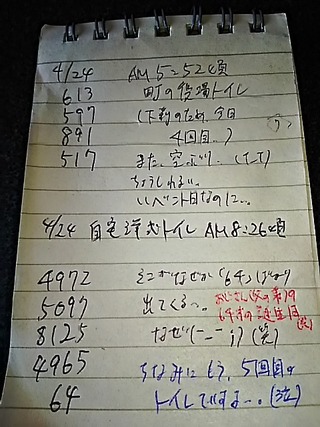 4/24 AM 5:52頃
613 町の役場トイレ
597 (下剤のため、今日
891 4回目..)
517 また、空ぶり.. (T_T)
ちょうしわるい..
イベント日なのに...
4/24 自宅洋式トイレ AM8:26頃
4972 そこがなぜか「64」ばかり
5097 出てくるっ..
おじさん
64才の誕生日
(笑)
8125 なぜ(ー_ー;)(笑)
4965 ちなみにもう、5回目の
64 トイレですよー..(泣)